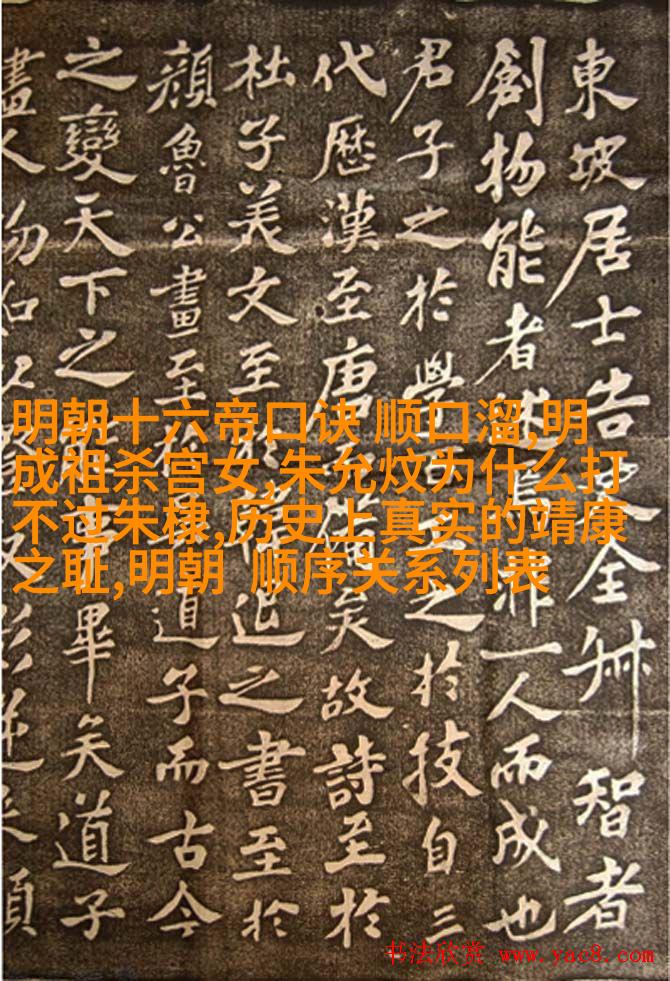 東坡居士告史全叔智者
創物能者述焉非一人而成也
君子之於學百工之於技自三
代歷漢至唐而備矣故詩至於
杜子美文至於韓退之書至於
顏魯公畫至於吳道子而古今
之變天下之能事畢矣道子
畫人物如以燈取影逆來順
明朝十六帝口诀 顺口溜,明
成祖杀宫女,朱允炆为什么打
不过朱棣,历史上真实的靖康
之耻,明朝 顺序关系列表
书法欣赏 www.yac8.com